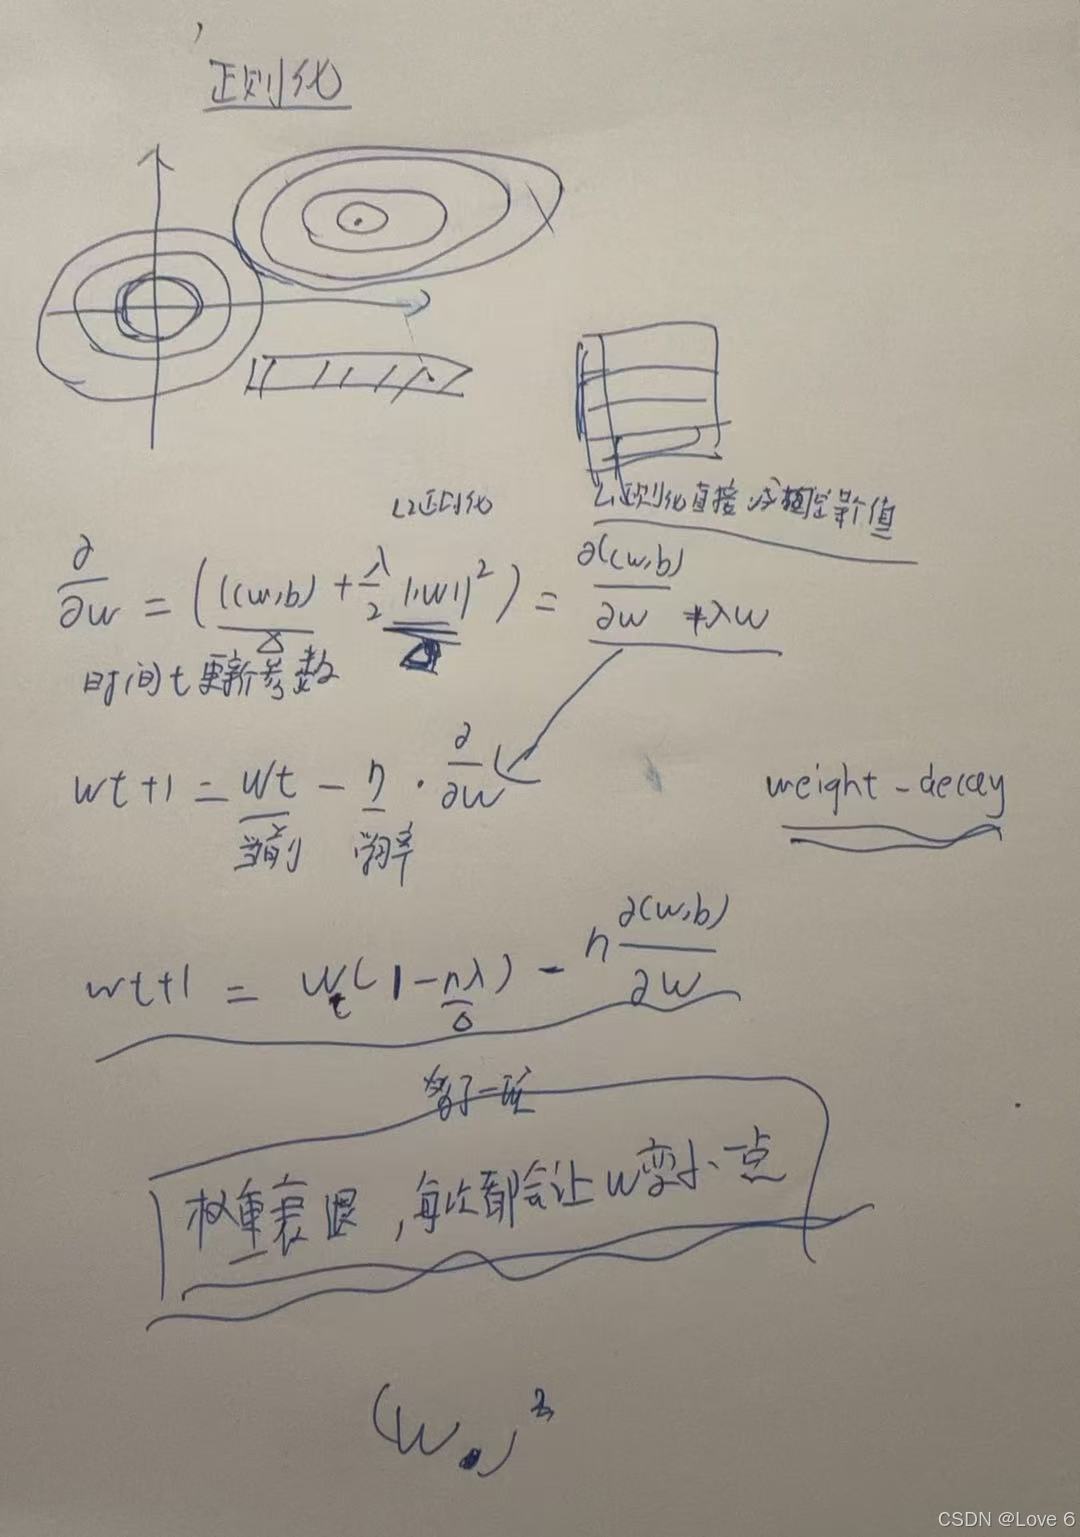 正则化
L2正则化
L1正则化直接
∂/∂w = (l(w,b) + λ/2 ||w||²) = ∂l(w,b)/∂w + λw
时间t更新参数
wt+1 = wt - η · ∂/∂w
weight-decay
当前 学习率
wt+1 = wt(1-ηλ) - η ∂(w,b)/∂w
多了一项
权重衰退，每次都会让w变小一点
(w )²
CSDN @Love 6